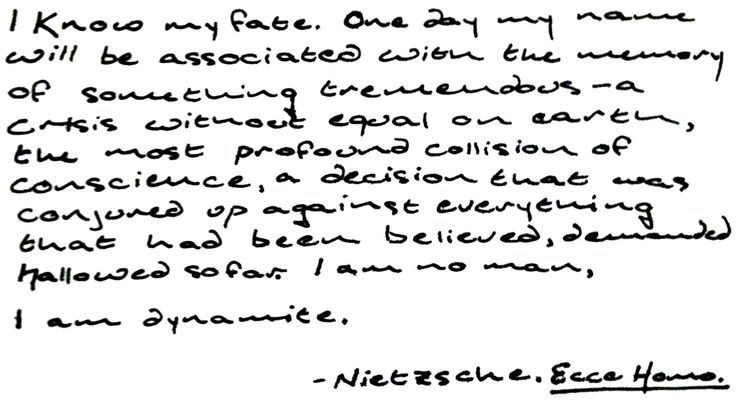 I Know my fate. One day my name
will be associated with the memory
of something tremendous – a
crisis without equal on earth,
the most profound collision of
conscience, a decision that was
conjured up against everything
that had been believed, demanded
hallowed so far. I am no man,
I am dynamite.
- Nietzsche. Ecce Homo.